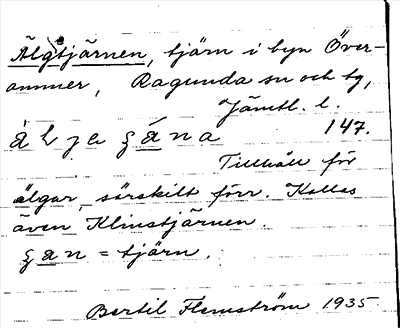 Älgtjärnen, tjärn i byn Över-
ammer, Ragunda sn och tg,
Jämtl. l.
147.
Tillhåll för
älgar, särskilt förr. Kallas
även Klinstjärnen.
= tjärn.
Bertil Flemström 1935